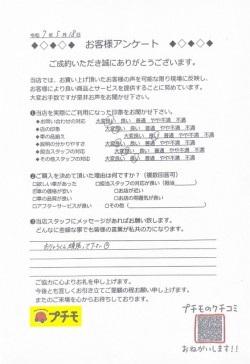 令和 7年 5月 18日
◆◇◆◇ お客様アンケート ◇◆◇◆
ご成約いただき誠にありがとうございます。
当店では、お買い上げ頂いたお客様の声を可能な限り現場に反映し、
お客様により良い商品とサービスを提供することに努めています。
大変お手数ですが是非お声をお聞かせ下さい。
❶当店を実際にご利用になった印象をお聞かせ下さい。
◆お問い合わせの対応 大変良い 良い 普通 やや不満 不満
◆店の印象 大変良い 良い 普通 やや不満 不満
◆車の品揃え 大変良い 良い 普通 やや不満 不満
◆説明の分かりやすさ 大変良い 良い 普通 やや不満 不満
◆担当スタッフの対応 大変良い 良い 普通 やや不満 不満
◆その他スタッフの対応 大変良い 良い 普通 やや不満 不満
❷ご購入を決めて頂いた理由は何ですか？（複数回答可）
□欲しい車があった □担当スタッフの対応が良い（担当
□車の価格が安い □お店が近い
□車の品質が良い □お店の雰囲気が良い
□アフターサービスが良い □その他（
❸当店スタッフにメッセージがあればお願い致します。
どんなに些細な事でも皆様の言葉が私共の力になります。
ご協力に心よりお礼を申し上げます。
今後とも宜しくお引き立てご愛顧の程お願い申し上げます。
またのご来場を心からお待ちしております。
プチモ
プチモのクチコミ
おねがいします!!